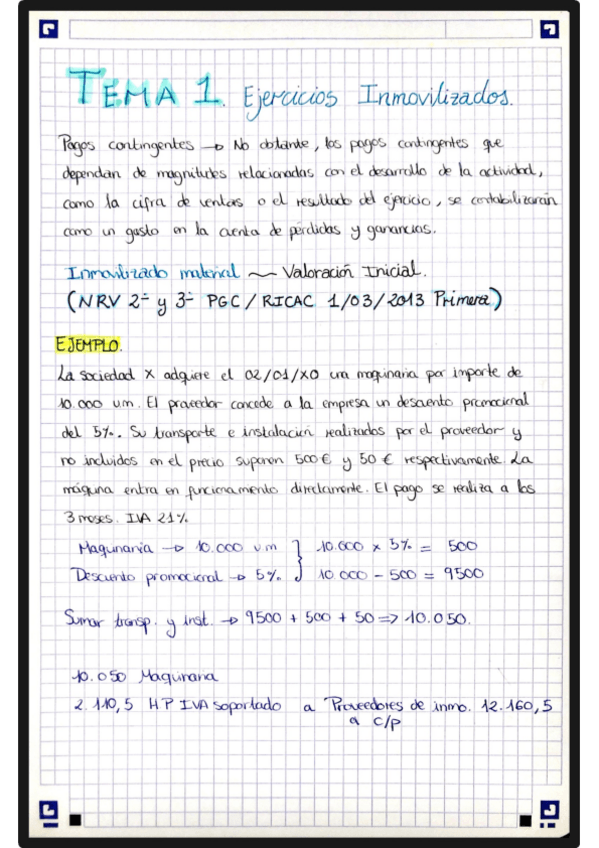 TEMA 1. Ejercicios Inmovilizados.
Pagos contingentes → No obtante, los pagos contingentes que
dependan de magnitudes relacionadas con el desarrollo de la actividad,
como la cifra de ventas o el resultado del ejercicio, se contabilizarán
como un gasto en la cuenta de pérdidas y ganancias.
Inmovilizado material ~ Valoración Inicial.
(NRV 2ª y 3ª PGC / RICAC 1/03/2013 Primera)
EJEMPLO.
La sociedad X adquiere el 02/01/X0 una maquinaria por importe de
10.000 u.m. El proveedor concede a la empresa un descuento promocional
del 5%. Su transporte e instalación realizados por el proveedor y
no incluidos en el precio suponen 500€ y 50 € respectivamente. La
máquina entra en funcionamiento directamente. El pago se realiza a los
3 meses. IVA 21%
Maquinaria → 10.000 u m } 10.000 x 5% = 500
Descuento promocional → 5% 10 000 - 500 = 9500
Sumar transp. y inst. → 9500 + 500 + 50 => 10.050.
10.050 Maquinaria
2.110,5 HP IVA soportado a Proveedores de inmo. 12.160,5
a c/p